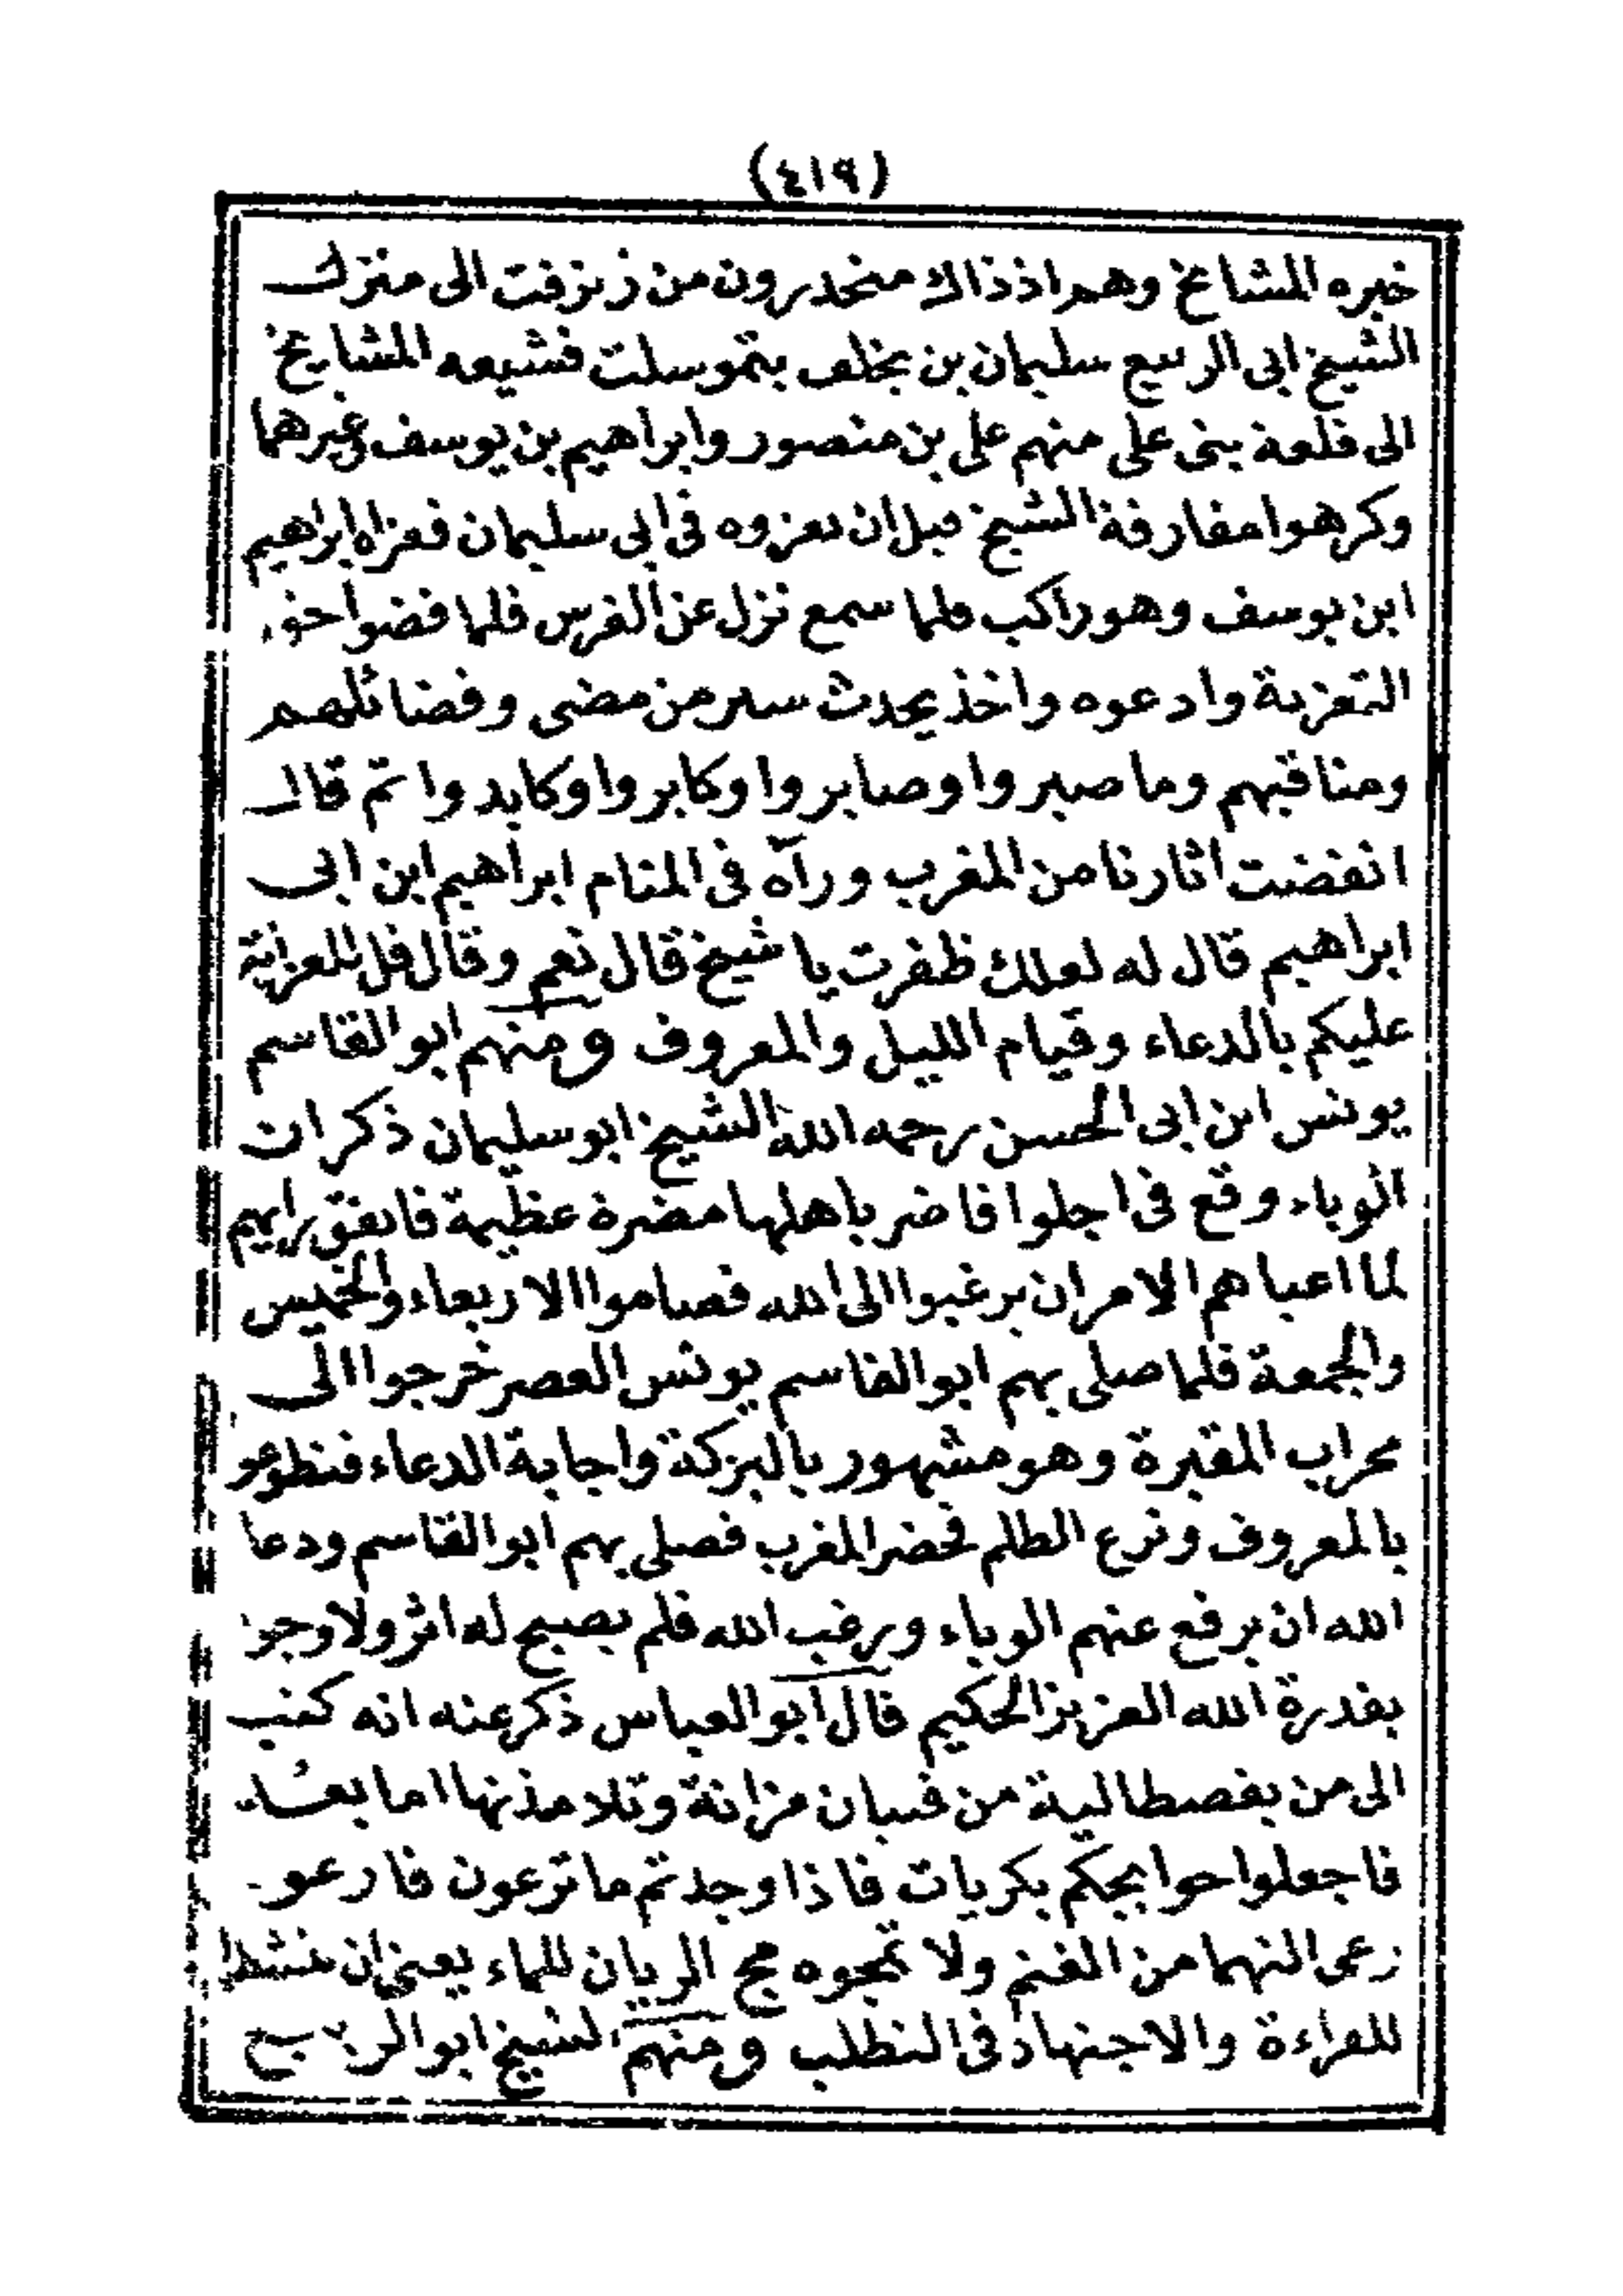 (٤١٩)
خبره المشايخ وهم اذذاك منحدرون من زنزفت الى منزل
الشيخ ابى الربيع سليمان بن يخلف بتموسلت فشيعه المشايخ
الى قلعة بنى على منهم على بن منصور وابراهيم بن يوسف وغيرهما
وكرهوا مفارقة الشيخ قبل ان يعزوه فى ابى سليمان فعزاه ابراهيم
ابن يوسف وهو راكب فلما سمع نزل عن الفرس فلما قضوا حق
التعزية وادعوه واخذ يحدث سير من مضى وفضائلهم
ومناقبهم وما صبروا وصابروا وكابروا وكابدوا ثم قال
انقضت اثارنا من المغرب ورآه فى المنام ابراهيم ابن ابى
ابراهيم قال له لعلك ظفرت يا شيخ قال نعم وقال قل للعزابة
عليكم بالدعاء وقيام الليل والمعروف ومنهم ابو القاسم
يونس ابن ابى الحسن رحمه الله الشيخ ابو سليمان ذكر ان
الوباء وقع فى اجلوا فاضر باهلها مضرة عظيمة فاتفق رايهم
لما اعياهم الامر ان يرغبوا الى الله فصاموا الاربعاء والخميس
والجمعة فلما صلى بهم ابو القاسم يونس العصر خرجوا الى
محراب المقبرة وهو مشهور بالبركة واجابة الدعاء فتطوعو
بالمعروف ونزع الظلم فحضر المغرب فصلى بهم ابو القاسم ودعا
الله ان يرفع عنهم الوباء ورغب الله فلم يصبح له اثر ولا وجو
بقدرة الله العزيز الحكيم قال ابو العباس ذكر عنه انه كتب
الى من بقصطالية من فتيان مزاتة وتلامذتها اما بعد
فاجعلوا حوايجكم بكريات فاذا وجدتم ما ترعون فارعو
رعى النهما من الغنم ولا تمجوه مج الريان للماء يعنى ان
للقراءة والاجتهاد فى التطلب ومنهم الشيخ ابو الربيع